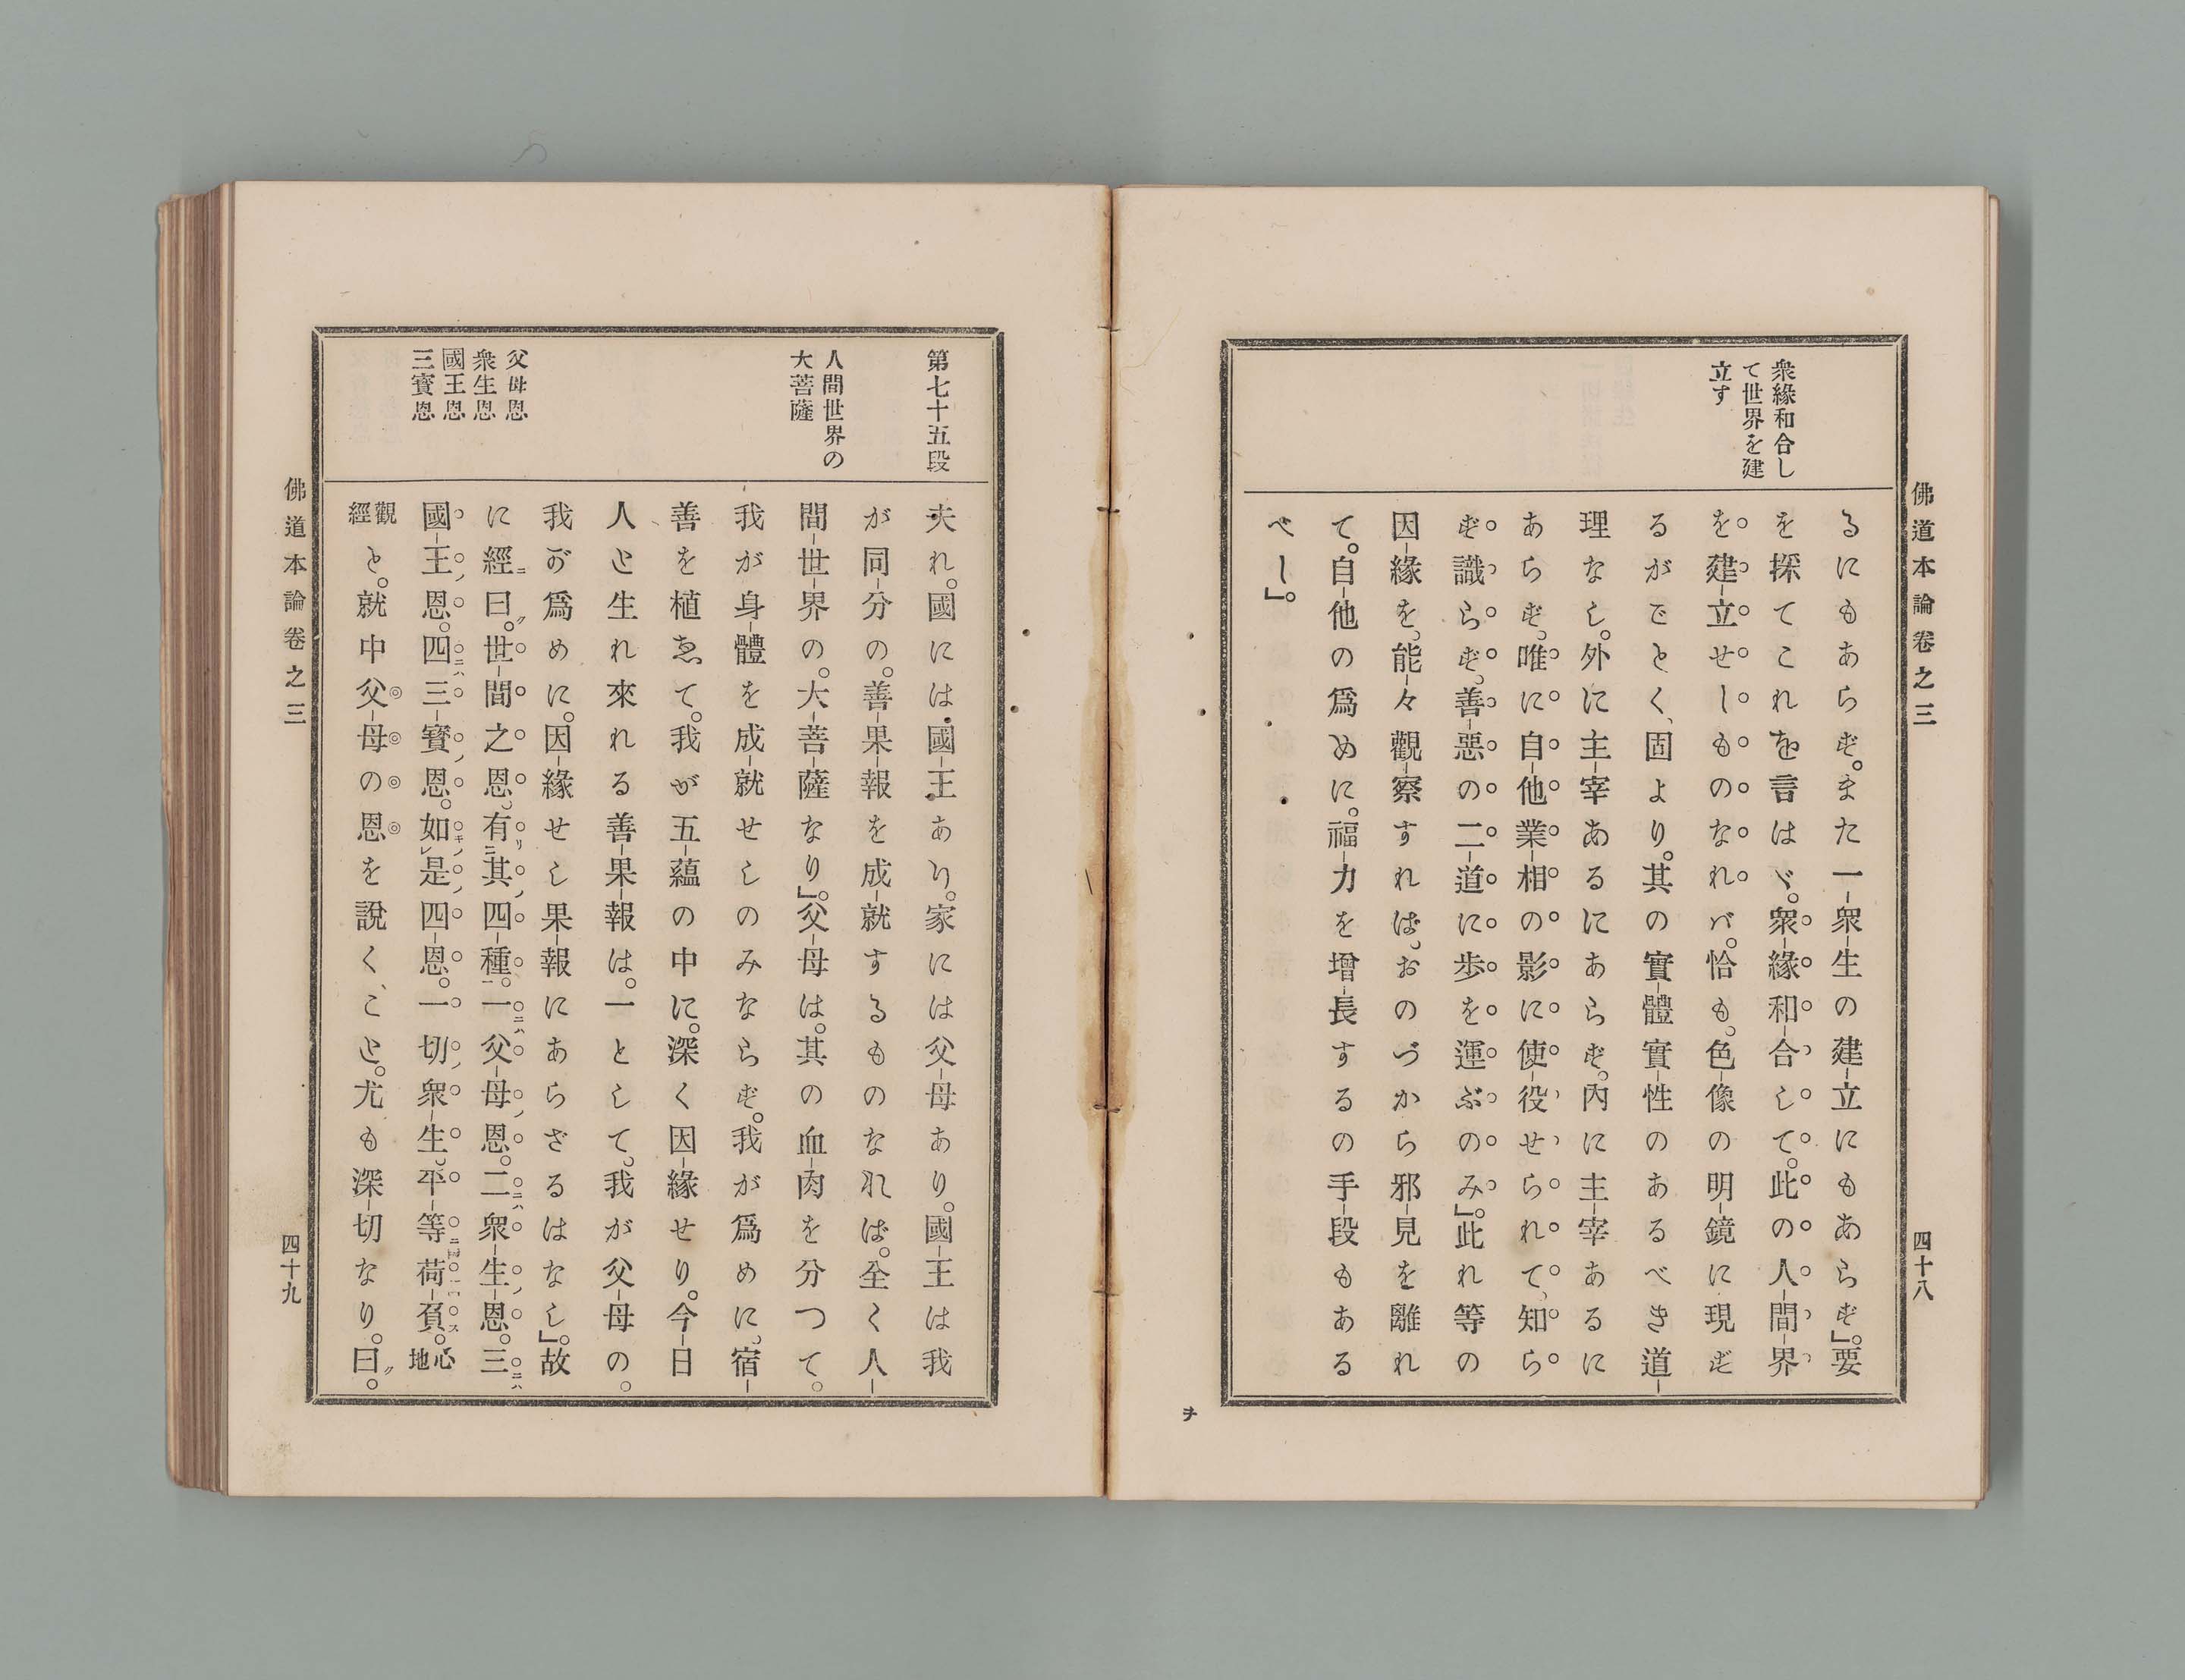 佛道本論卷之三
四十八
衆緣和合し
て世界を建
立す
るにもあらず。また一衆生の建立にもあらず』。要
を探てこれを言はゞ。衆緣和合して。此の人間界
を建立せしものなれバ。恰も。色像の明鏡に現ず
るがごとく、固より。其の實體實性のあるべき道
理なし。外に主宰あるにあらず。內に主宰あるに
あらず。唯に自他業相の影に使役せられて、知ら
ず識らず。善惡の二道に歩を運ぶのみ』。此れ等の
因緣を、能々觀察すれば。おのづから邪見を離れ
て。自他の爲めに。福力を增長するの手段もある
べし』。
ヲ
第七十五段
人間世界の
大菩薩
父母恩
衆生恩
國王恩
三寶恩
夫れ。國には國王あり。家には父母あり。國王は我
が同分の。善果報を成就するものなれば。全く人
間世界の。大菩薩なり』。父母は。其の血肉を分つて。
我が身體を成就せしのみならず。我が爲めに。宿
善を植ゑて。我が五蘊の中に。深く因緣せり。今日
人と生れ來れる善果報は。一として。我が父母の。
我が爲めに。因緣せし果報にあらざるはなし』。故
に經ニ曰ク。世間之恩。有リ二其ノ四種一。一ニハ父母ノ恩。二ニハ衆生ノ恩。三ニハ
國王ノ恩。四ニハ三寶ノ恩。如キノレ是ノ四恩。一切ノ衆生。平等ニ荷負ス。心地
觀經と。就中父母の恩を說く、こと。尤も深切なり。曰ク。
佛道本論卷之三
四十九